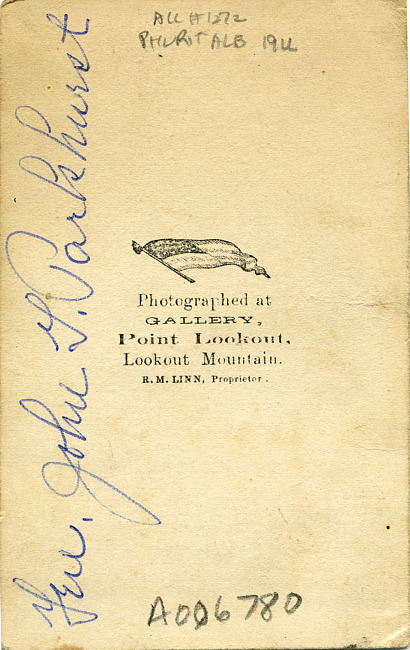 ALL #1272
PHURST ALB 19LL
Gen. John G. Parkhurst
Photographed at
GALLERY,
Point Lookout,
Lookout Mountain.
R. M. LINN, Proprietor.
A006780